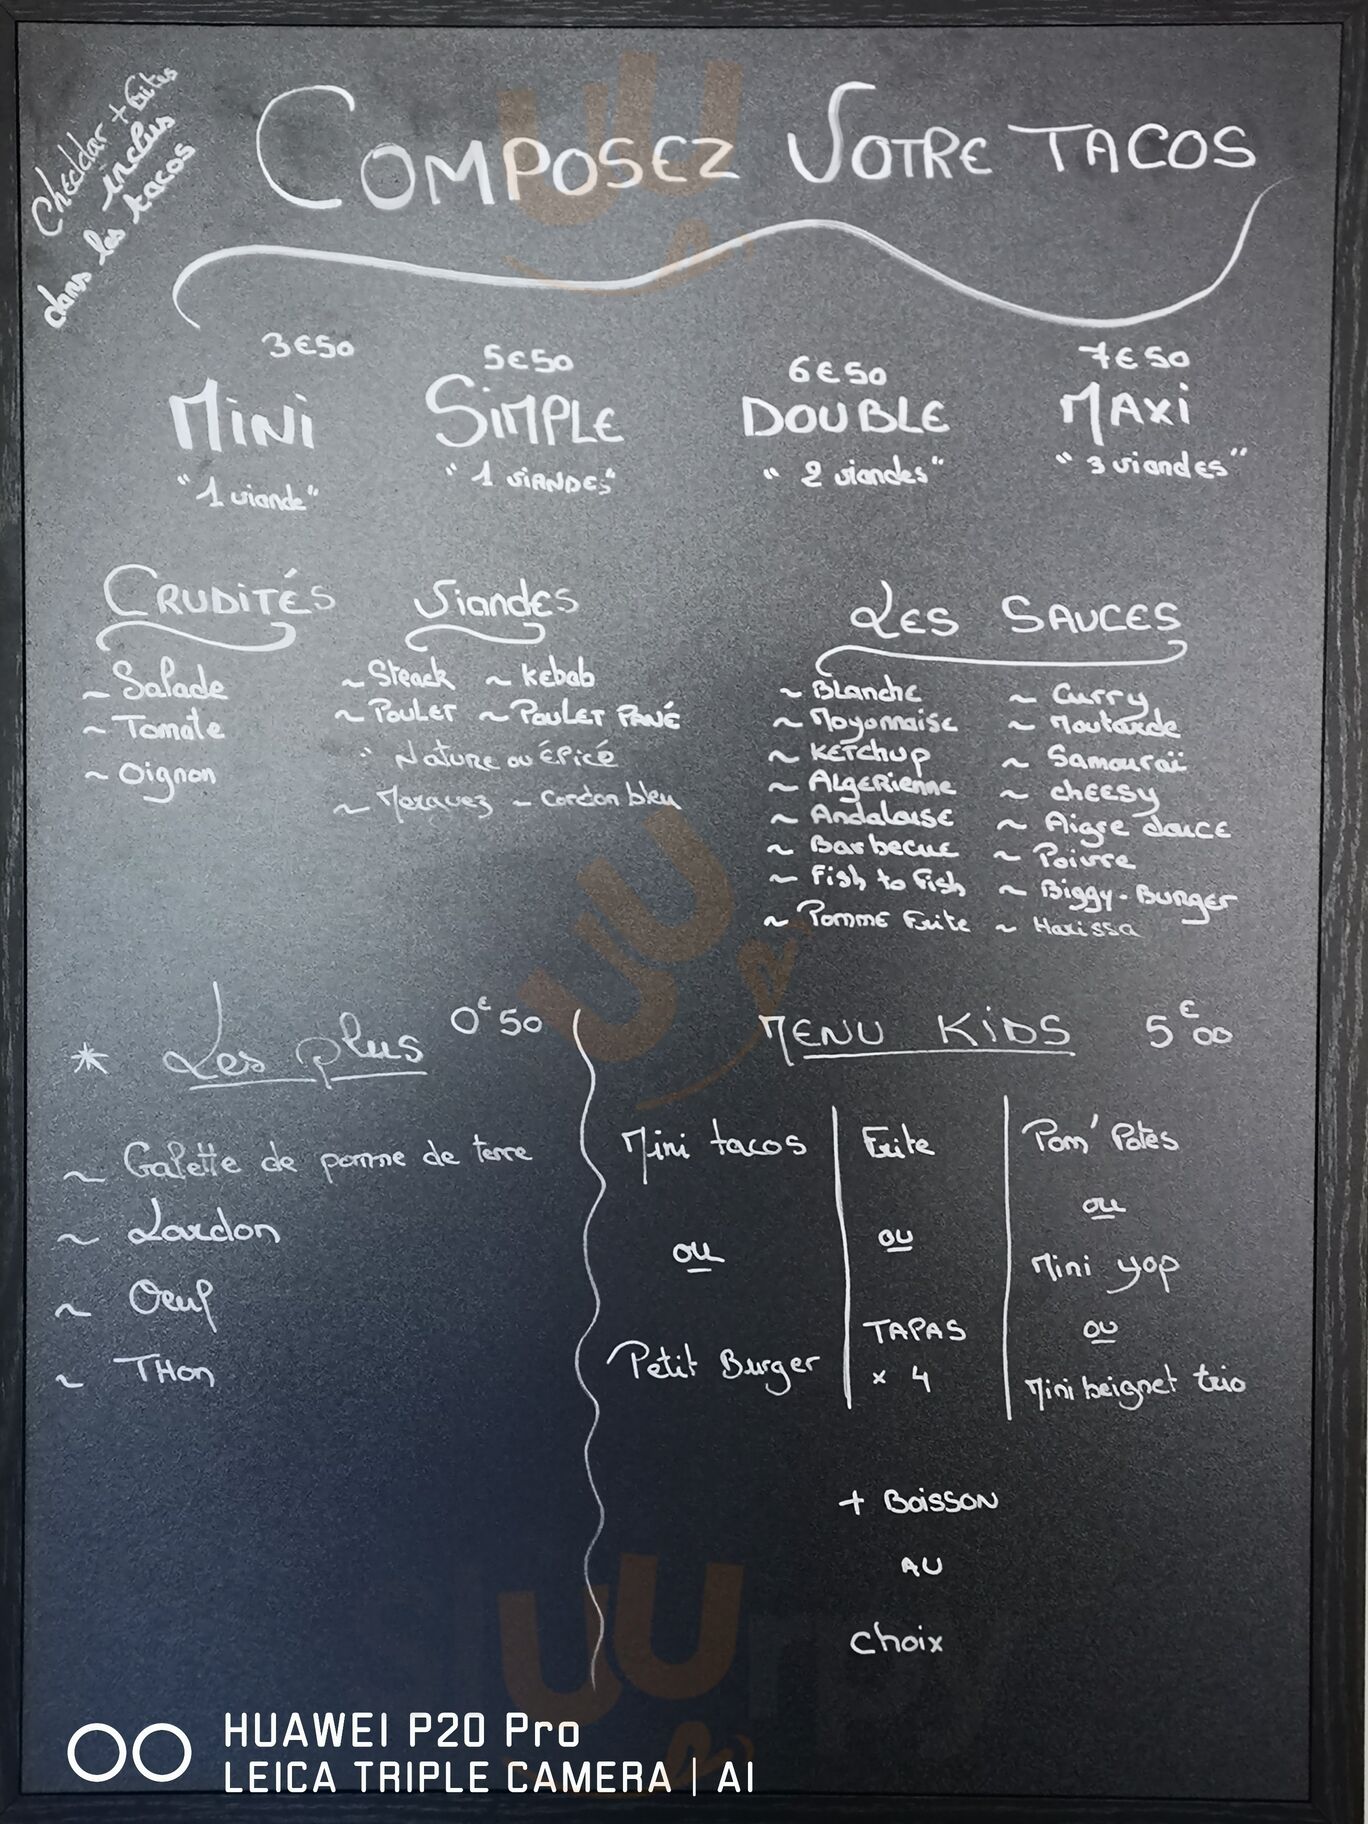 Cheddar + frites
inclus
dans les tacos
COMPOSEZ VOTRE TACOS
3€50
MiNi
"1 viande"
5€50
SiMPLE
"1 viANDES"
6€50
DOUBLE
"2 viandes"
7€50
MAXi
"3 viandes"
CRUDITÉS
~ Salade
~ Tomate
~ Oignon
Viandes
~ Steack ~ Kebab
~ POULET ~ POULET PANÉ
" NATURE ou ÉPicÉ
~ Merguez ~ Cordon bleu
LES SAUCES
~ Blanche ~ Curry
~ Mayonnaise ~ Moutarde
~ KETchup ~ Samouraï
~ ALGERienne ~ chEESy
~ Andalouse ~ Aigre douce
~ Barbecue ~ Poivre
~ Fish to Fish ~ Biggy-Burger
~ Pomme Frite ~ Harissa
* Les plus 0€50
~ Galette de pomme de terre
~ Lardon
~ Oeuf
~ THon
MENU KiDS 5€00
Mini tacos
ou
Petit Burger
Frite
ou
TAPAS
x 4
Pom' Potes
ou
Mini yop
ou
Mini beignet trio
+ Boisson
AU
choix
HUAWEI P20 Pro
LEICA TRIPLE CAMERA | AI